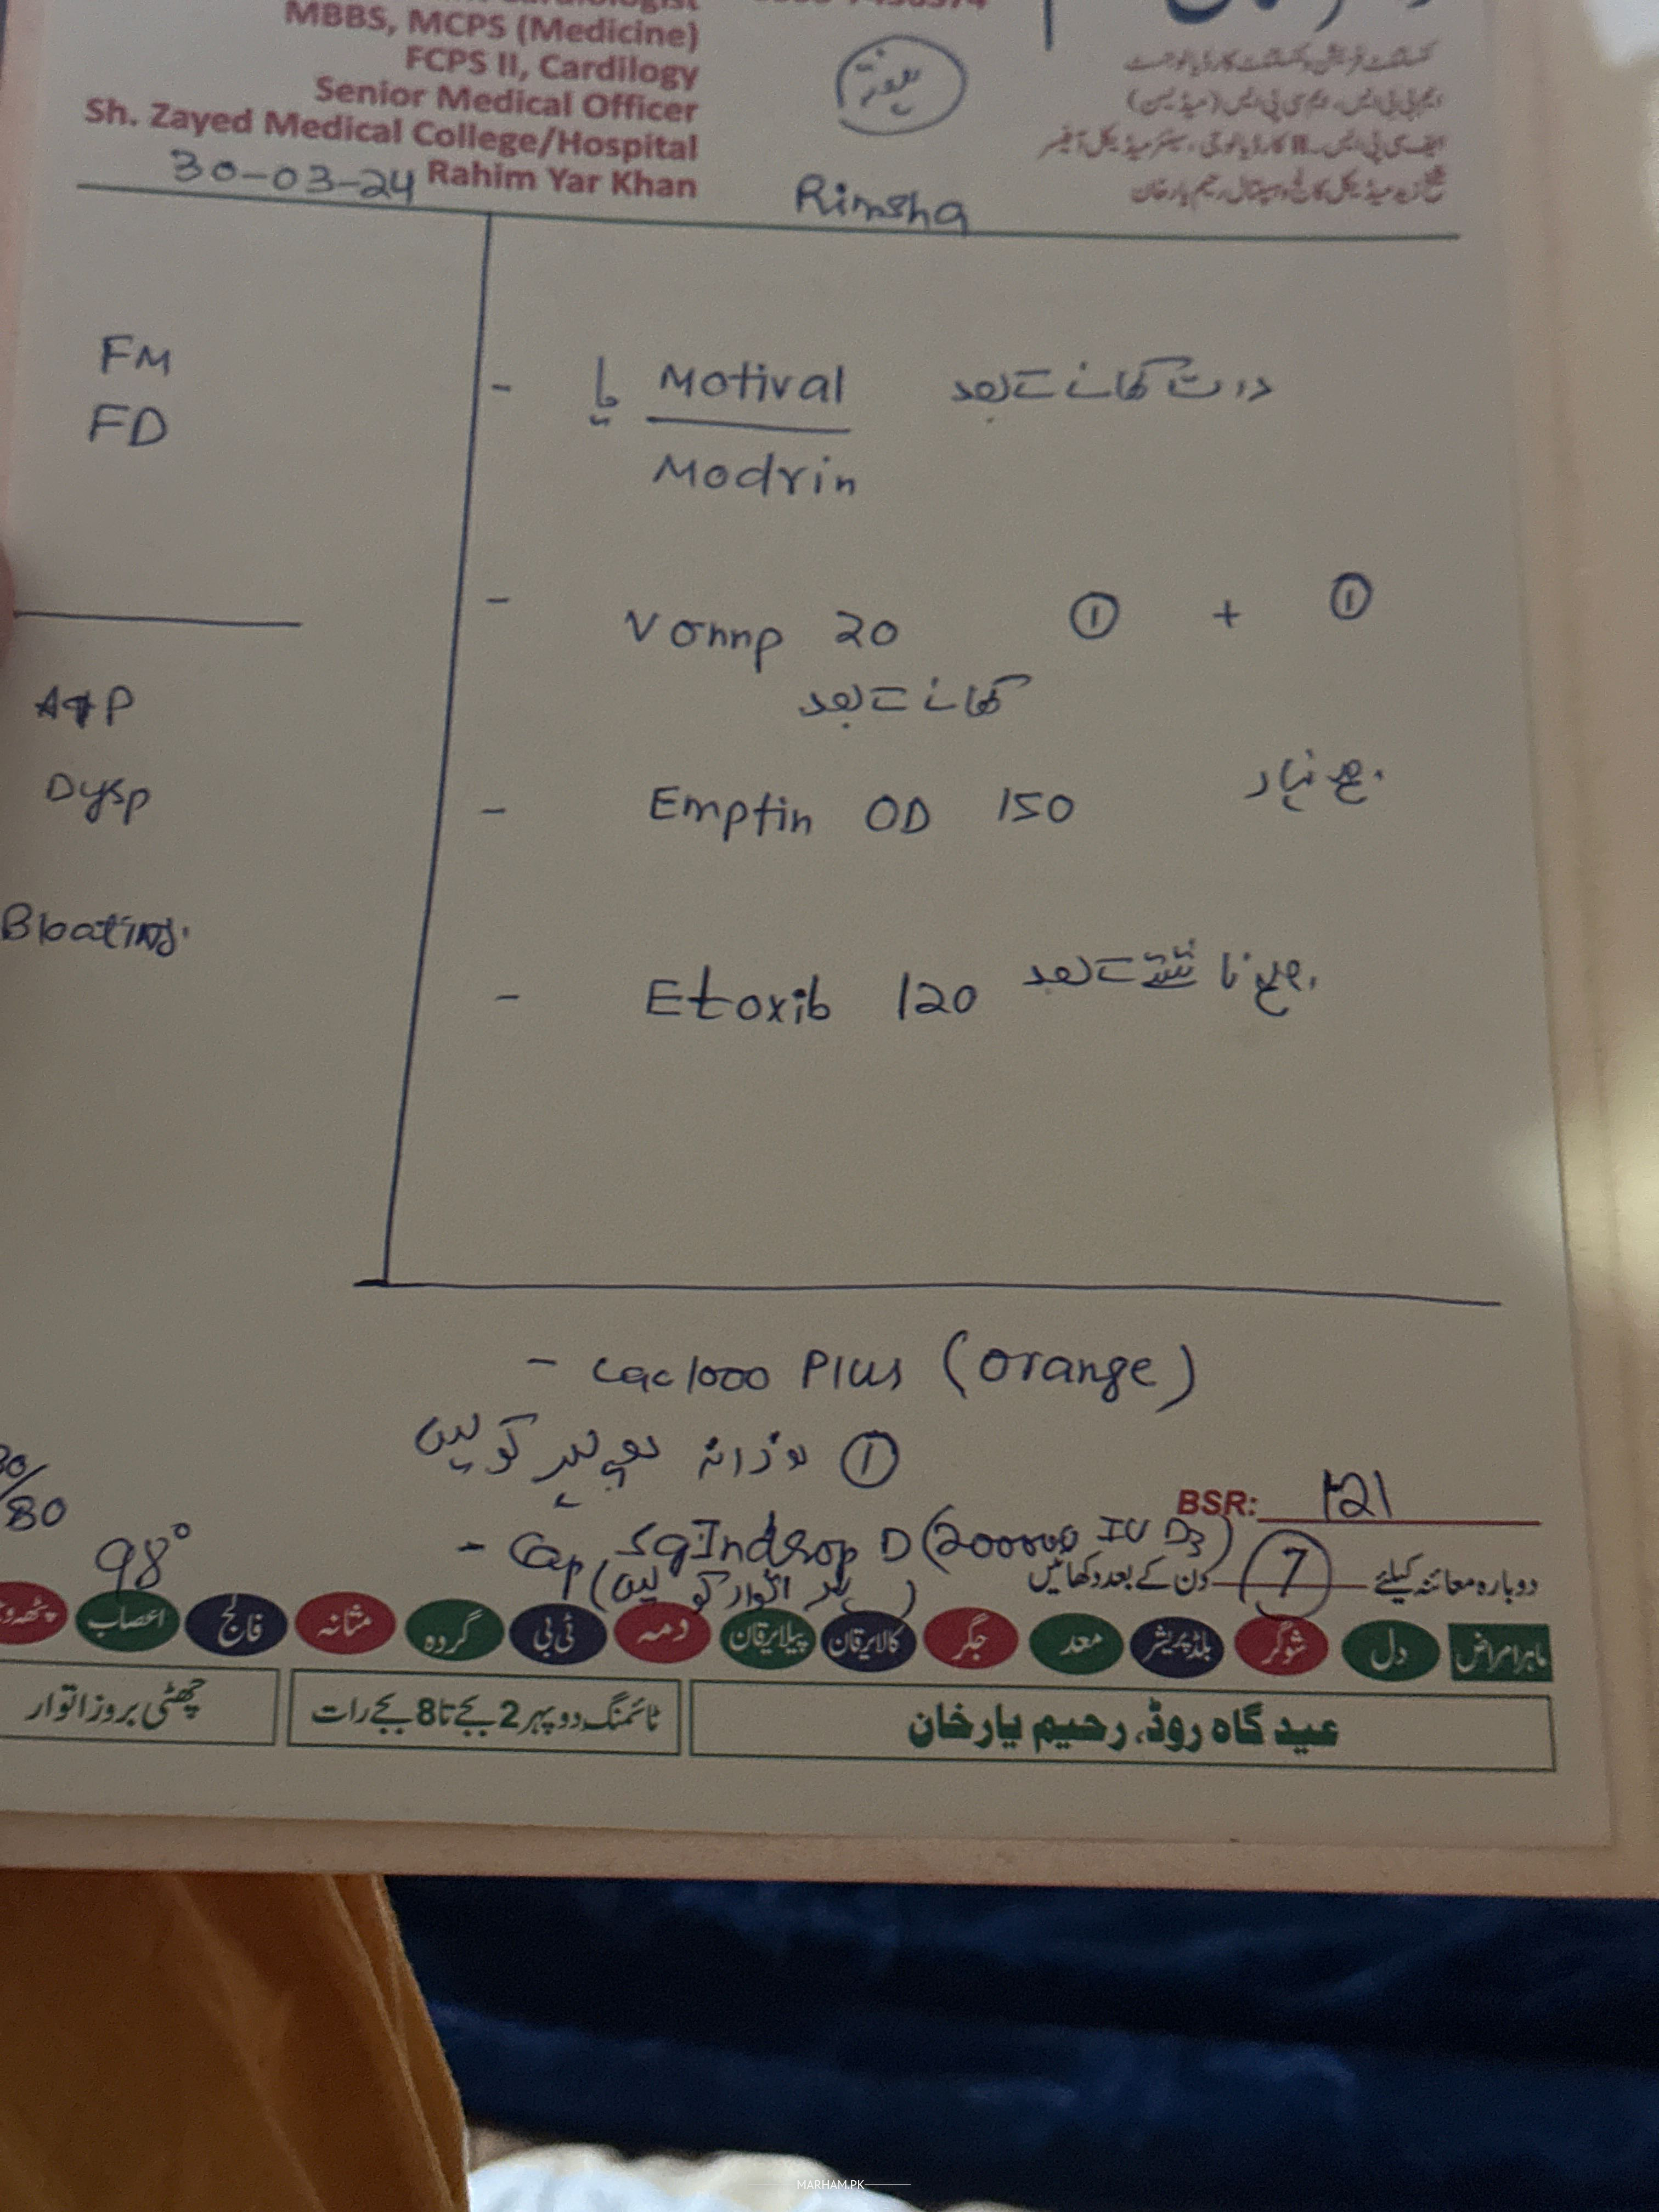 MBBS, MCPS (Medicine)
FCPS II, Cardilogy
Senior Medical Officer
Sh. Zayed Medical College/Hospital
Rahim Yar Khan
30-03-24
Rimsha
کنسلٹنٹ فزیشن کنسلٹنٹ کارڈیالوجسٹ
ایم بی بی ایس، ایم سی پی ایس (میڈیسن)
ایف سی پی ایس-II کارڈیالوجی، سینئر میڈیکل آفیسر
شیخ زید میڈیکل کالج/ہسپتال، رحیم یار خان
FM
FD
- Motival یا
رات کھانے کے بعد
Modrin
- Vonnp 20 ① + ①
کھانے کے بعد
Dysp
Bloating.
- Emptin OD 150
- Etoxib 120 صبح ناشتے کے بعد
- Cac1000 Plus (Orange)
① روزانہ دوپہر کو لیں
80
98°
BSR: 121
- Cap Indrop D (200000 IU D3)
(ہر اتوار کو لیں)
دوبارہ معائنہ کیلئے 7 دن کے بعد دکھائیں
ماہر امراض دل شوگر بلڈ پریشر معدہ جگر کالا یرقان پیلا یرقان دمہ ٹی بی گردہ مثانہ فالج اعصاب
عید گاہ روڈ، رحیم یار خان
ٹائمنگ دوپہر 2 بجے تا 8 بجے رات
چھٹی بروز اتوار
MARHAM.PK